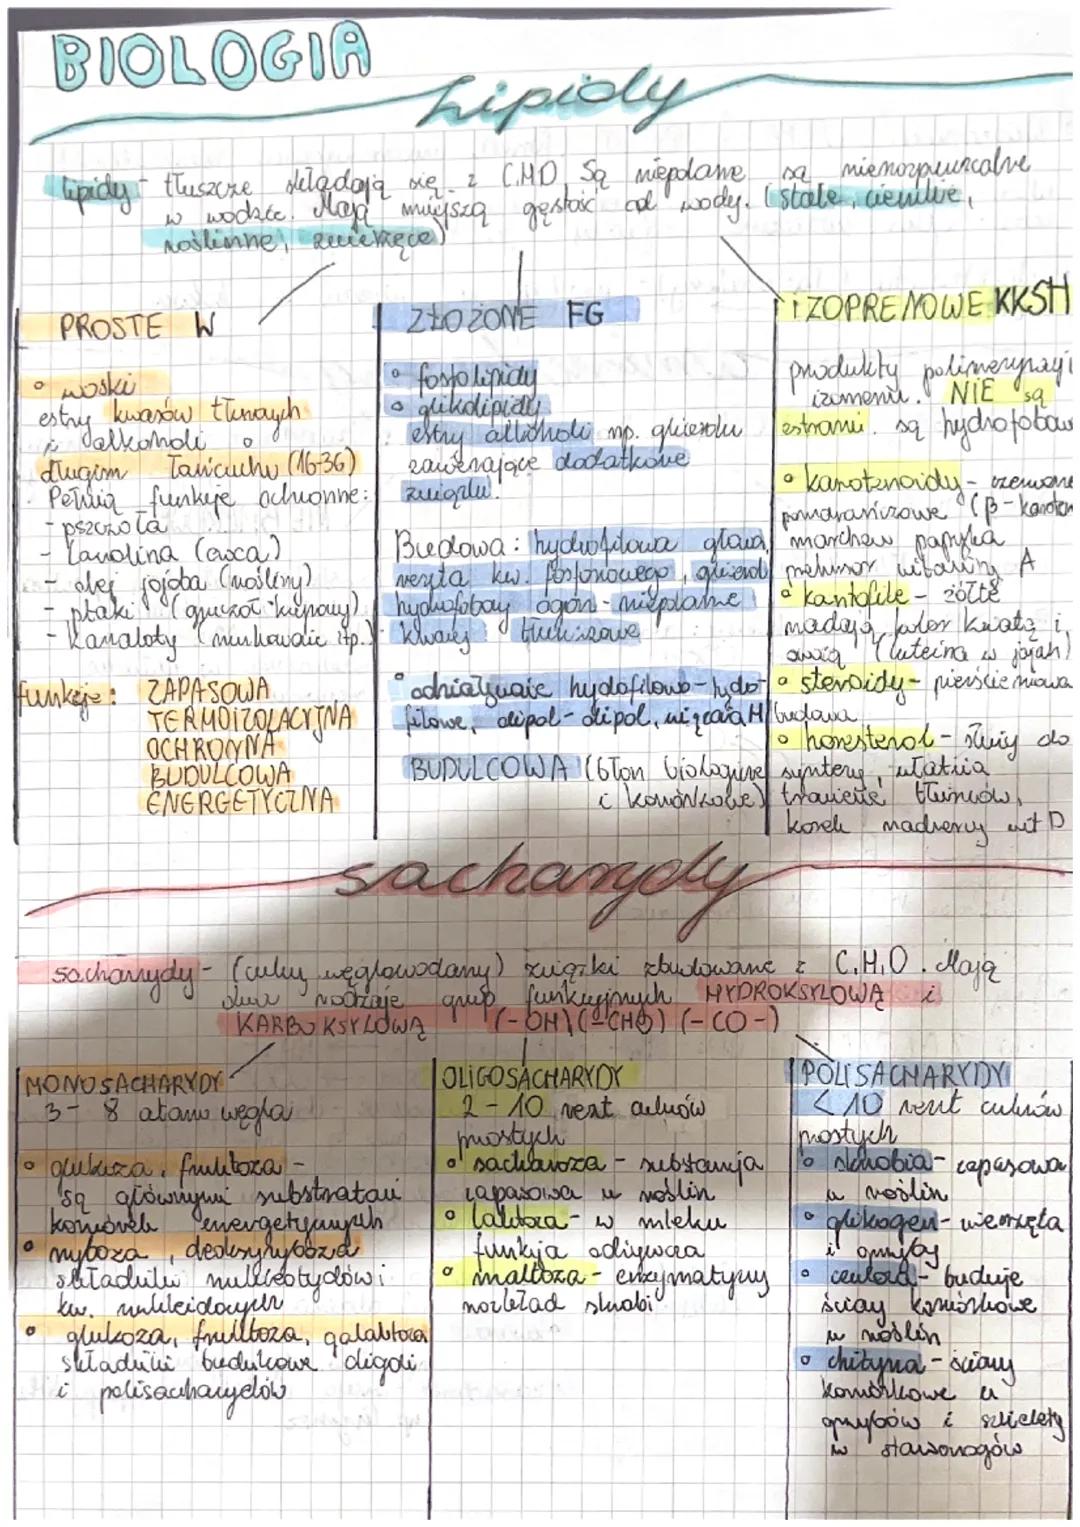 BIOLOGIA
Lipidy
lipidy - tłuszcze składają się z C,H,O Są niepolarne są nierozpuszczalne
w wodzie. Mają mniejszą gęstość od wody. (stałe, ciekłe,
roślinne, zwierzęce)
PROSTE W
• woski
estry kwasów tłuszowych
i alkoholi o
długim łańcuchu (16-36)
Pełnią funkcje ochronne:
- pszczoła
- Lanolina (owca)
- olej jojoba (rośliny)
- ptaki (gruczoł kuprowy)
- Kanaloty itp.)
funkcje: ZAPASOWA
TERMOIZOLACYJNA
OCHRONNA
BUDULCOWA
ENERGETYCZNA
ZŁOŻONE FG
• fosfolipidy
• glikolipidy
estry alkoholi np. glicerolu
zawierające dodatkowe
związki.
Budowa: hydrofilowa głowa,
reszta kw. fosforowego, glicerol
hydrofobowy ogon - niepolarne
kwasy tłuszczowe
• odziaływanie hydofilowo-hydo-
filowe, dipol-dipol, wiązania H
BUDULCOWA (błon biologiczne
i komórkowe)
IZOPRENOWE KKSH
produkty polimeryzacji
izoprenu. NIE są
estrami. są hydrofobow
• karotenoidy - czerwone
pomarańczowe (β-karoten
marchew papryka
witaminy A
• ksantofile - żółte
nadają kolor kwiatą i
owocą (luteina w jajah)
• steroidy - pierścieniowa
budowa
• horesterol - służy do
syntezy, ułatwia
trawienie tłuszców,
korek nadnerczy wit D
sacharydy
sacharydy - (cukry węglowodany) związki zbudowane z C,H,O. Mają
dwa rodzaje grup funkcyjnych HYDROKSYLOWĄ i
KARBOKSYLOWĄ (-OH) (-CHO) (-CO-)
MONOSACHARYDY
3 - 8 atomu węgla
• glukoza, fruktoza -
są głównymi substratami
komórek energetycznych
• ryboza, deoksyryboza
składniki nukleotydów i
kw. nukleidowych
• glukoza, fruktoza, galaktoza
składniki budulcowe oligoli
i polisacharydów
OLIGOSACHARYDY
2 - 10 reszt cukrów
prostych
• sacharoza - substancja
zapasowa u roślin
• laktoza - w mleku
funkcja odżywcza
• maltoza - enzymatyczny
rozkład skrobi
POLISACHARYDY
< 10 reszt cukrów
prostych
• skrobia - zapasowa
u roślin
• glikogen - wierzęta
i grzyby
• celuloza - buduje
ściany komórkowe
u roślin
• chityna - ściany
komórkowe u
grzybów i szkielety
u stawonogów